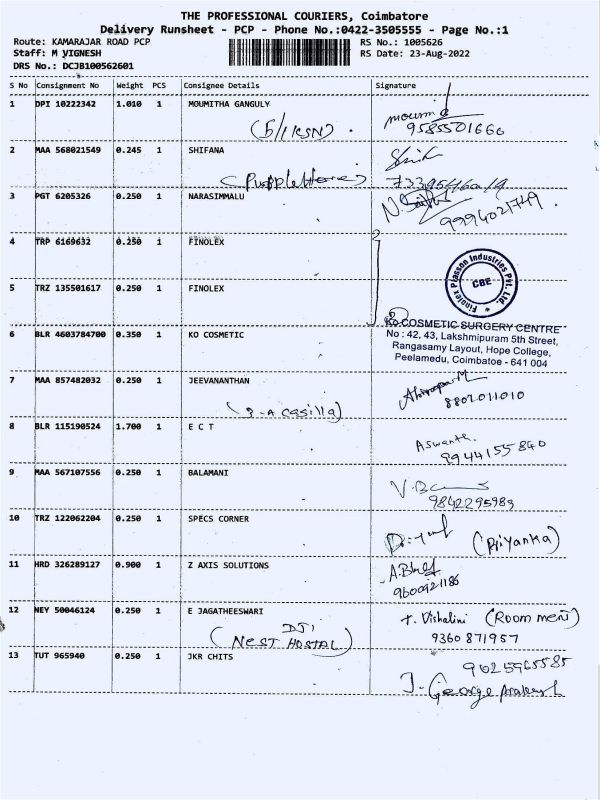 THE PROFESSIONAL COURIERS, Coimbatore
Delivery Runsheet - PCP - Phone No.:0422-3505555 - Page No.:1
Route: KAMARAJAR ROAD PCP RS No.: 1005626
Staff: M VIGNESH RS Date: 23-Aug-2022
DRS No.: DCJB100562601
S No Consignment No Weight PCS Consignee Details Signature
1 DPI 10222342 1.010 1 MOUMITHA GANGULY
9585501666
2 MAA 568021549 0.245 1 SHIFANA
3 PGT 6205326 0.250 1 NARASIMMALU
9994021749
4 TRP 6169632 0.250 1 FINOLEX
Finolex Plasson Industries Pvt. Ltd.
CBE
5 TRZ 135501617 0.250 1 FINOLEX
KO COSMETIC SURGERY CENTRE
6 BLR 4603784700 0.350 1 KO COSMETIC No : 42, 43, Lakshmipuram 5th Street,
Rangasamy Layout, Hope College,
Peelamedu, Coimbatoe - 641 004
7 MAA 857482032 0.250 1 JEEVANANTHAN
8807011010
8 BLR 115190524 1.700 1 E C T
Aswanth.
9944155840
9 MAA 567107556 0.250 1 BALAMANI
9842295989
10 TRZ 122062204 0.250 1 SPECS CORNER
(Priyanka)
11 HRD 326289127 0.900 1 Z AXIS SOLUTIONS
9600921186
12 NEY 50046124 0.250 1 E JAGATHEESWARI t. Vishalini (Room ment)
(NEST HOSTAL) 9360 871957
13 TUT 965940 0.250 1 JKR CHITS
9025965585
J. George